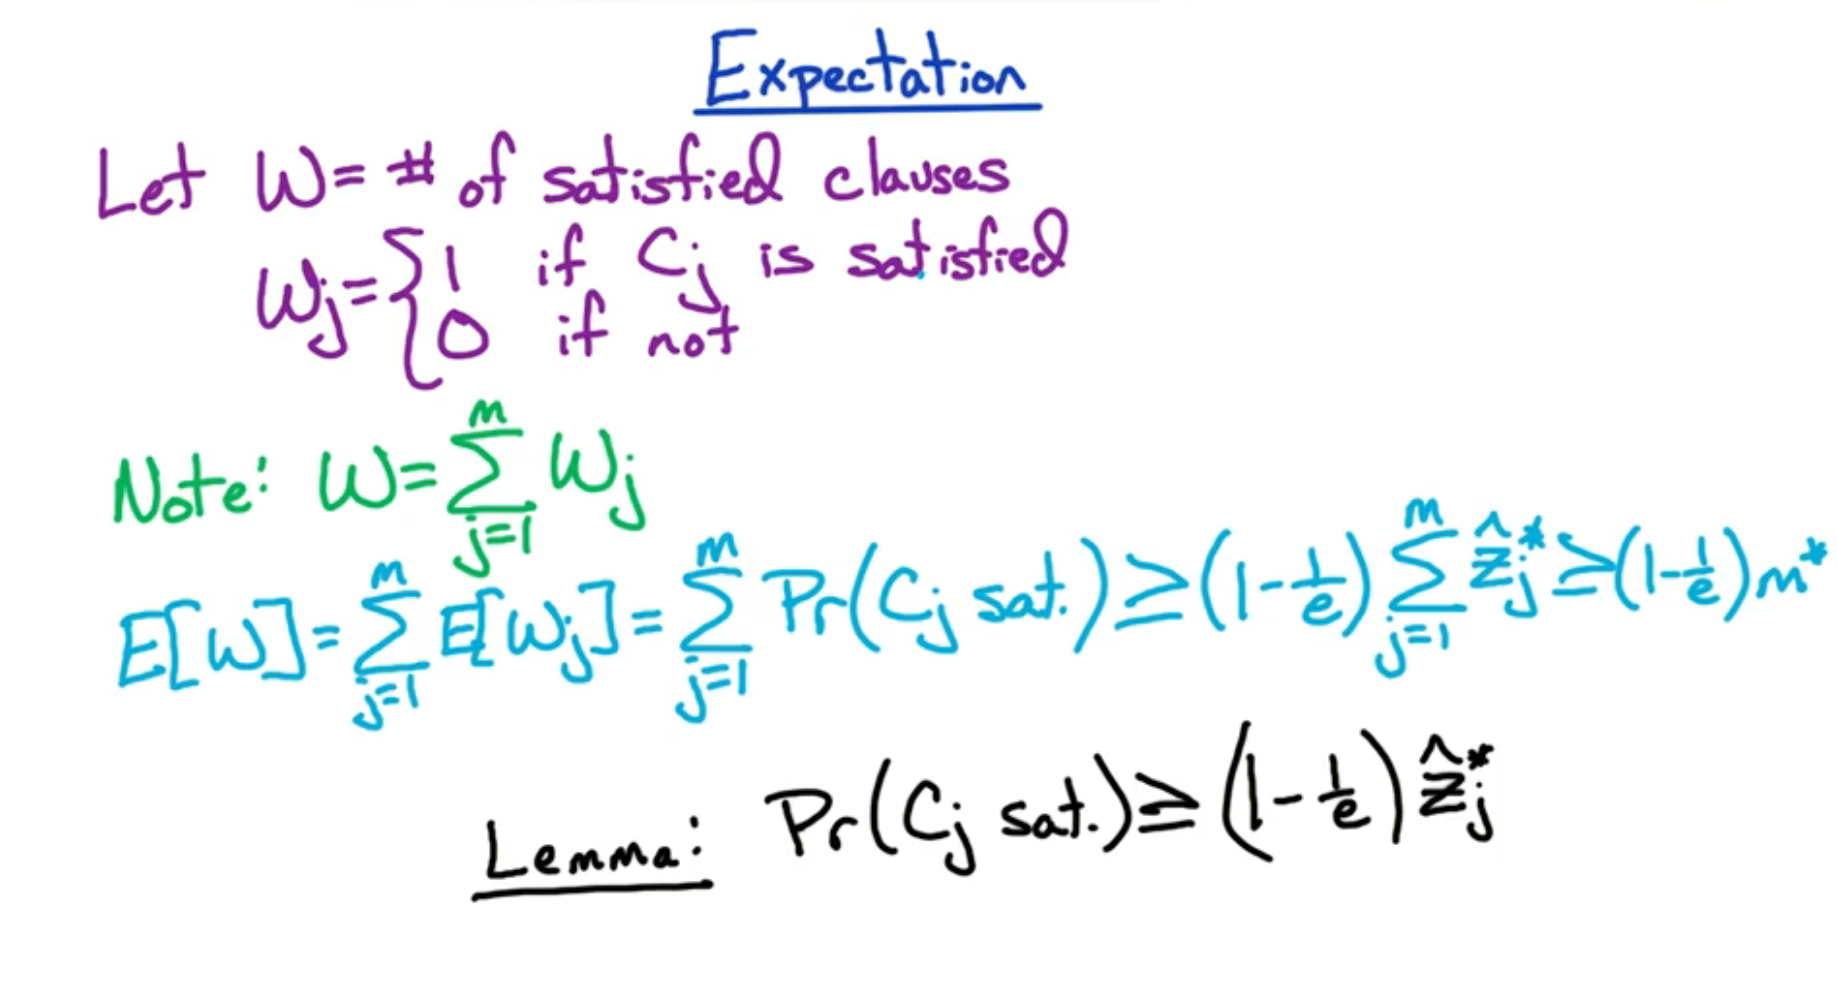 Expectation
Let W = # of satisfied clauses
Wj = { 1 if Cj is satisfied
0 if not
Note: W = ∑_{j=1}^{m} Wj
E[W] = ∑_{j=1}^{m} E[Wj] = ∑_{j=1}^{m} Pr(Cj sat.) ≥ (1-1/e) ∑_{j=1}^{m} ẑ*_j ≥ (1-1/e) m*
Lemma: Pr(Cj sat.) ≥ (1-1/e) ẑ*_j